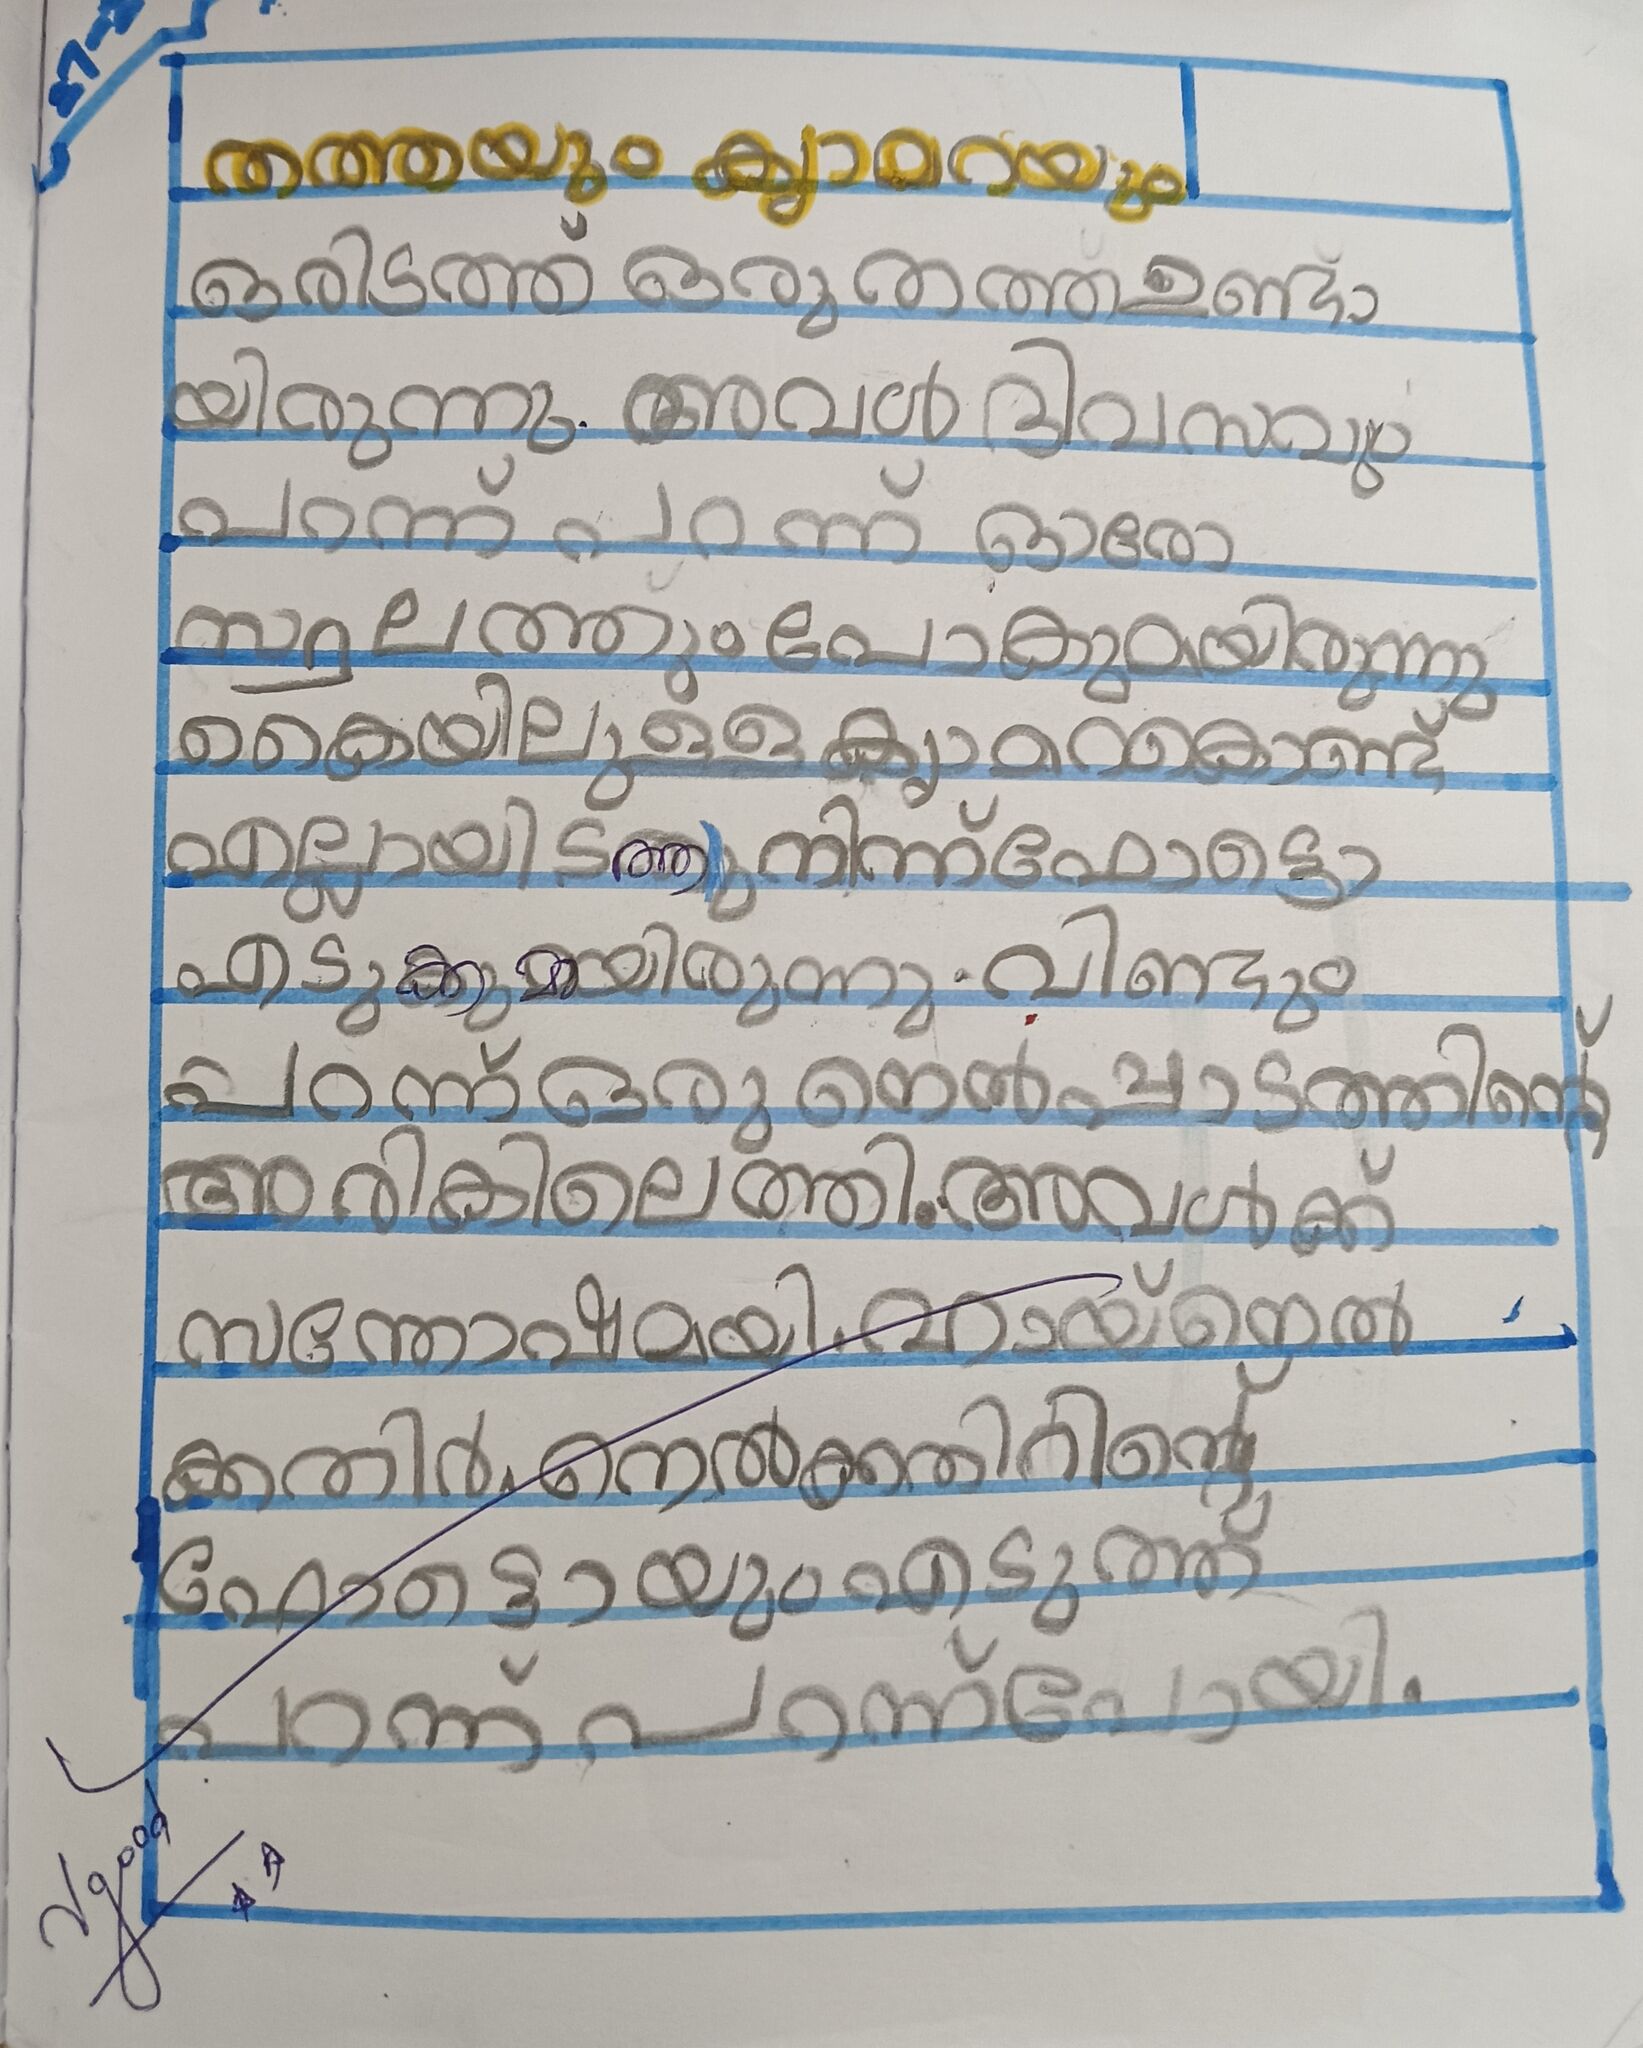 തത്തയും ക്യാമറയും
ഒരിടത്ത് ഒരു തത്ത ഉണ്ടാ
യിരുന്നു. അവൾ ദിവസവും
പറന്ന് പറന്ന് ഓരോ
സ്ഥലത്തും പോകുമായിരുന്നു
കൈയിലുള്ള ക്യാമറകൊണ്ട്
എല്ലായിടത്തുനിന്ന് ഫോട്ടൊ
എടുക്കുമായിരുന്നു. വിണ്ടും
പറന്ന് ഒരു നെൽപ്പാടത്തിന്റെ
അരികിലെത്തി. അവൾക്ക്
സന്തോഷമായി. ഹായ് നെൽ
ക്കതിർ. നെൽക്കതിറിന്റെ
ഫോട്ടൊയും എടുത്ത്
പറന്ന് പറന്ന് പോയി.
V good